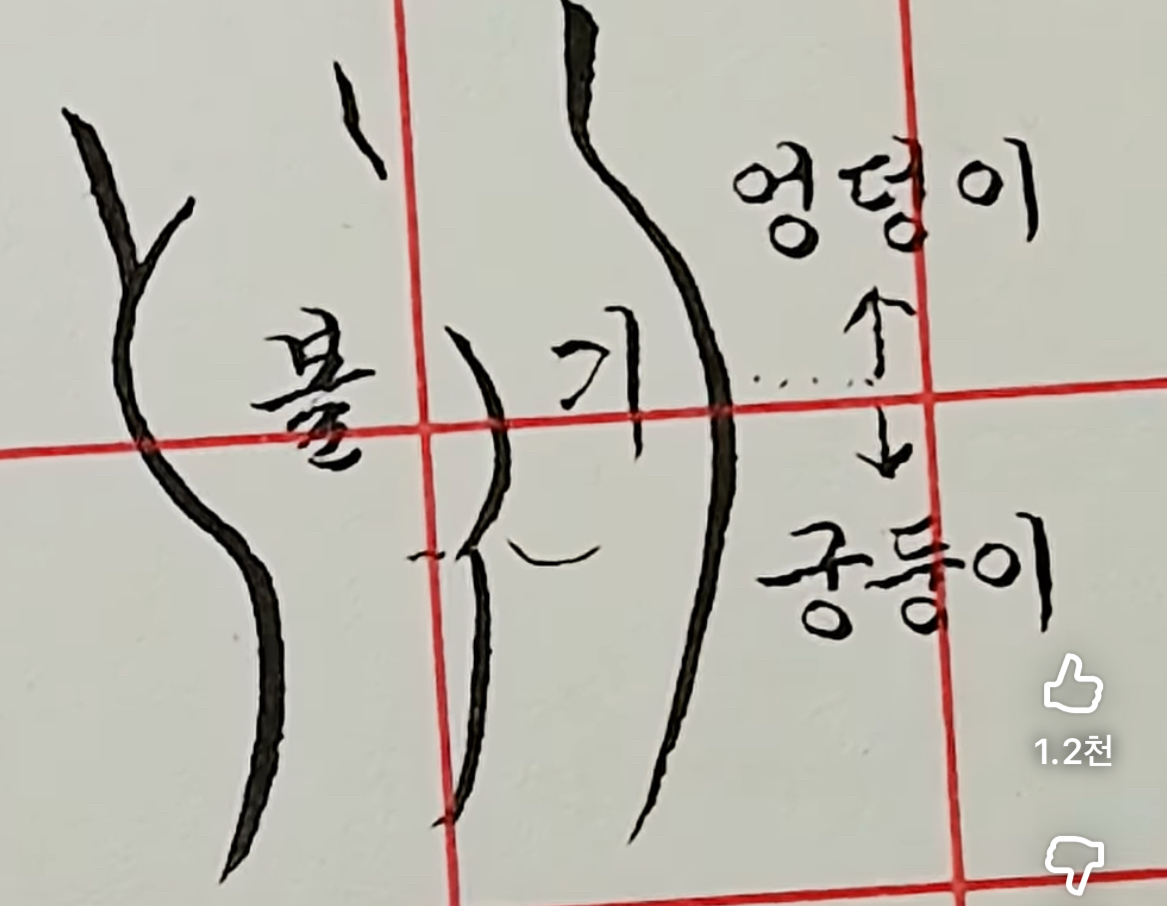 엉덩이
볼기
궁둥이
1.2천